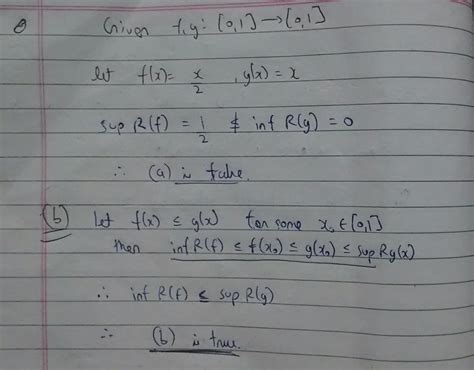 Given f,g: [0,1] → [0,1]
let f(x) = x/2 , g(x) = x
sup R(f) = 1/2 & inf R(g) = 0
∴ (a) is false.
(b) Let f(x) ≤ g(x) for some x₀ ∈ [0,1]
then inf R(f) ≤ f(x₀) ≤ g(x₀) ≤ sup Rg(x)
∴ inf R(f) ≤ sup R(g)
∴ (b) is true.